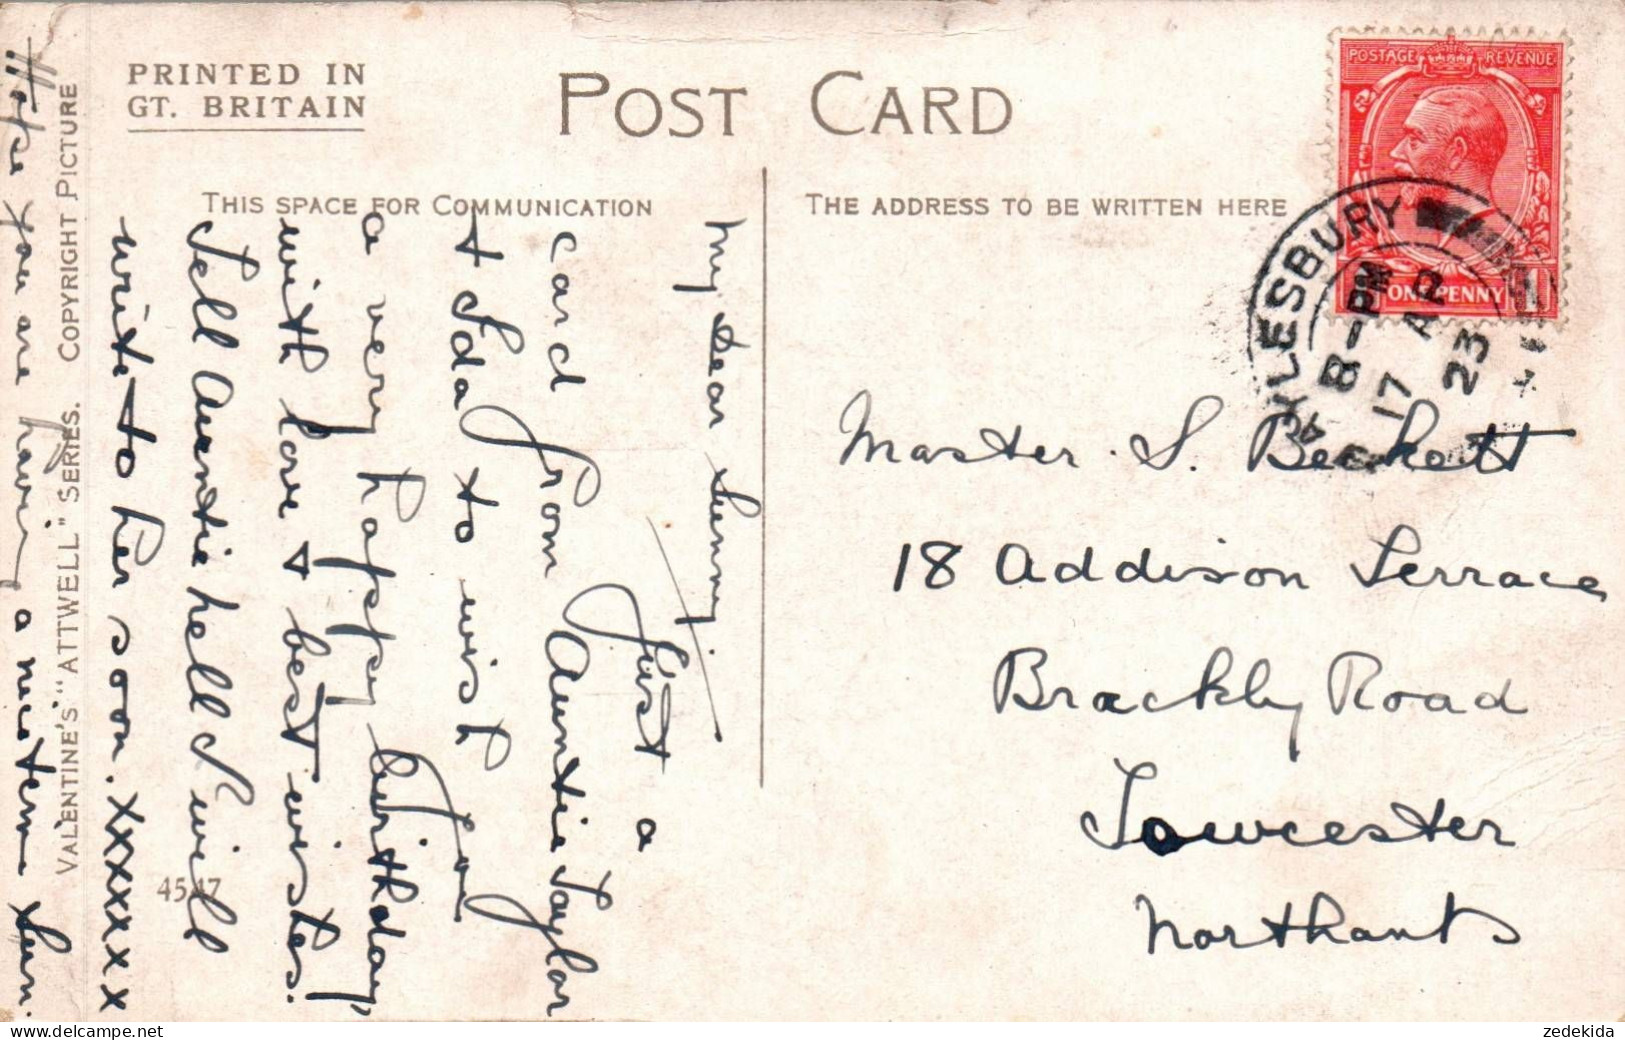 PRINTED IN
GT. BRITAIN
POST CARD
THIS SPACE FOR COMMUNICATION
THE ADDRESS TO BE WRITTEN HERE
VALENTINE'S "ATTWELL" SERIES. COPYRIGHT PICTURE
4547
My Dear Sunny.
Just a
card from Auntie Taylor
& Ida to wish you
a very happy birthday,
with love & best wishes.
Tell Auntie Nell I will
write to her soon. xxxxxxx
Hope you are having a nice time Sun.
POSTAGE REVENUE
ONE PENNY
AYLESBURY
8-PM
17 AP
23
Master. S. Beckett
18 Addison Terrace
Brackly Road
Towcester
Northants
zedekida